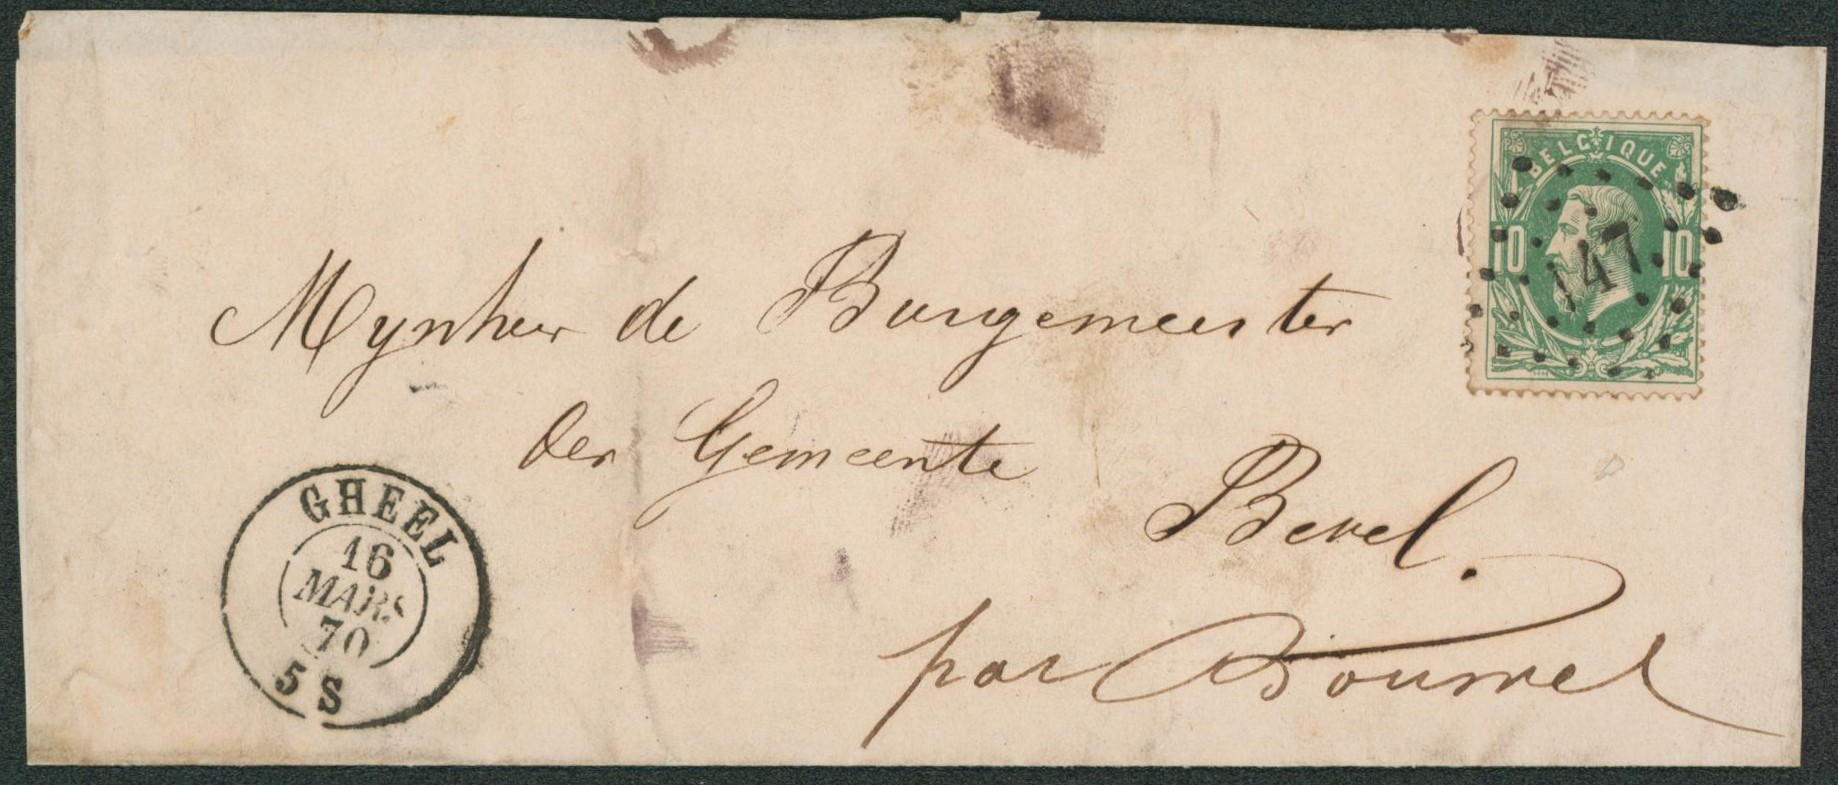 BELGIQUE
10 10
147
Mynheer de Burgemeester
der Gemeente
Bevel.
par Bouwel
GHEEL
16
MARS
70
5 S